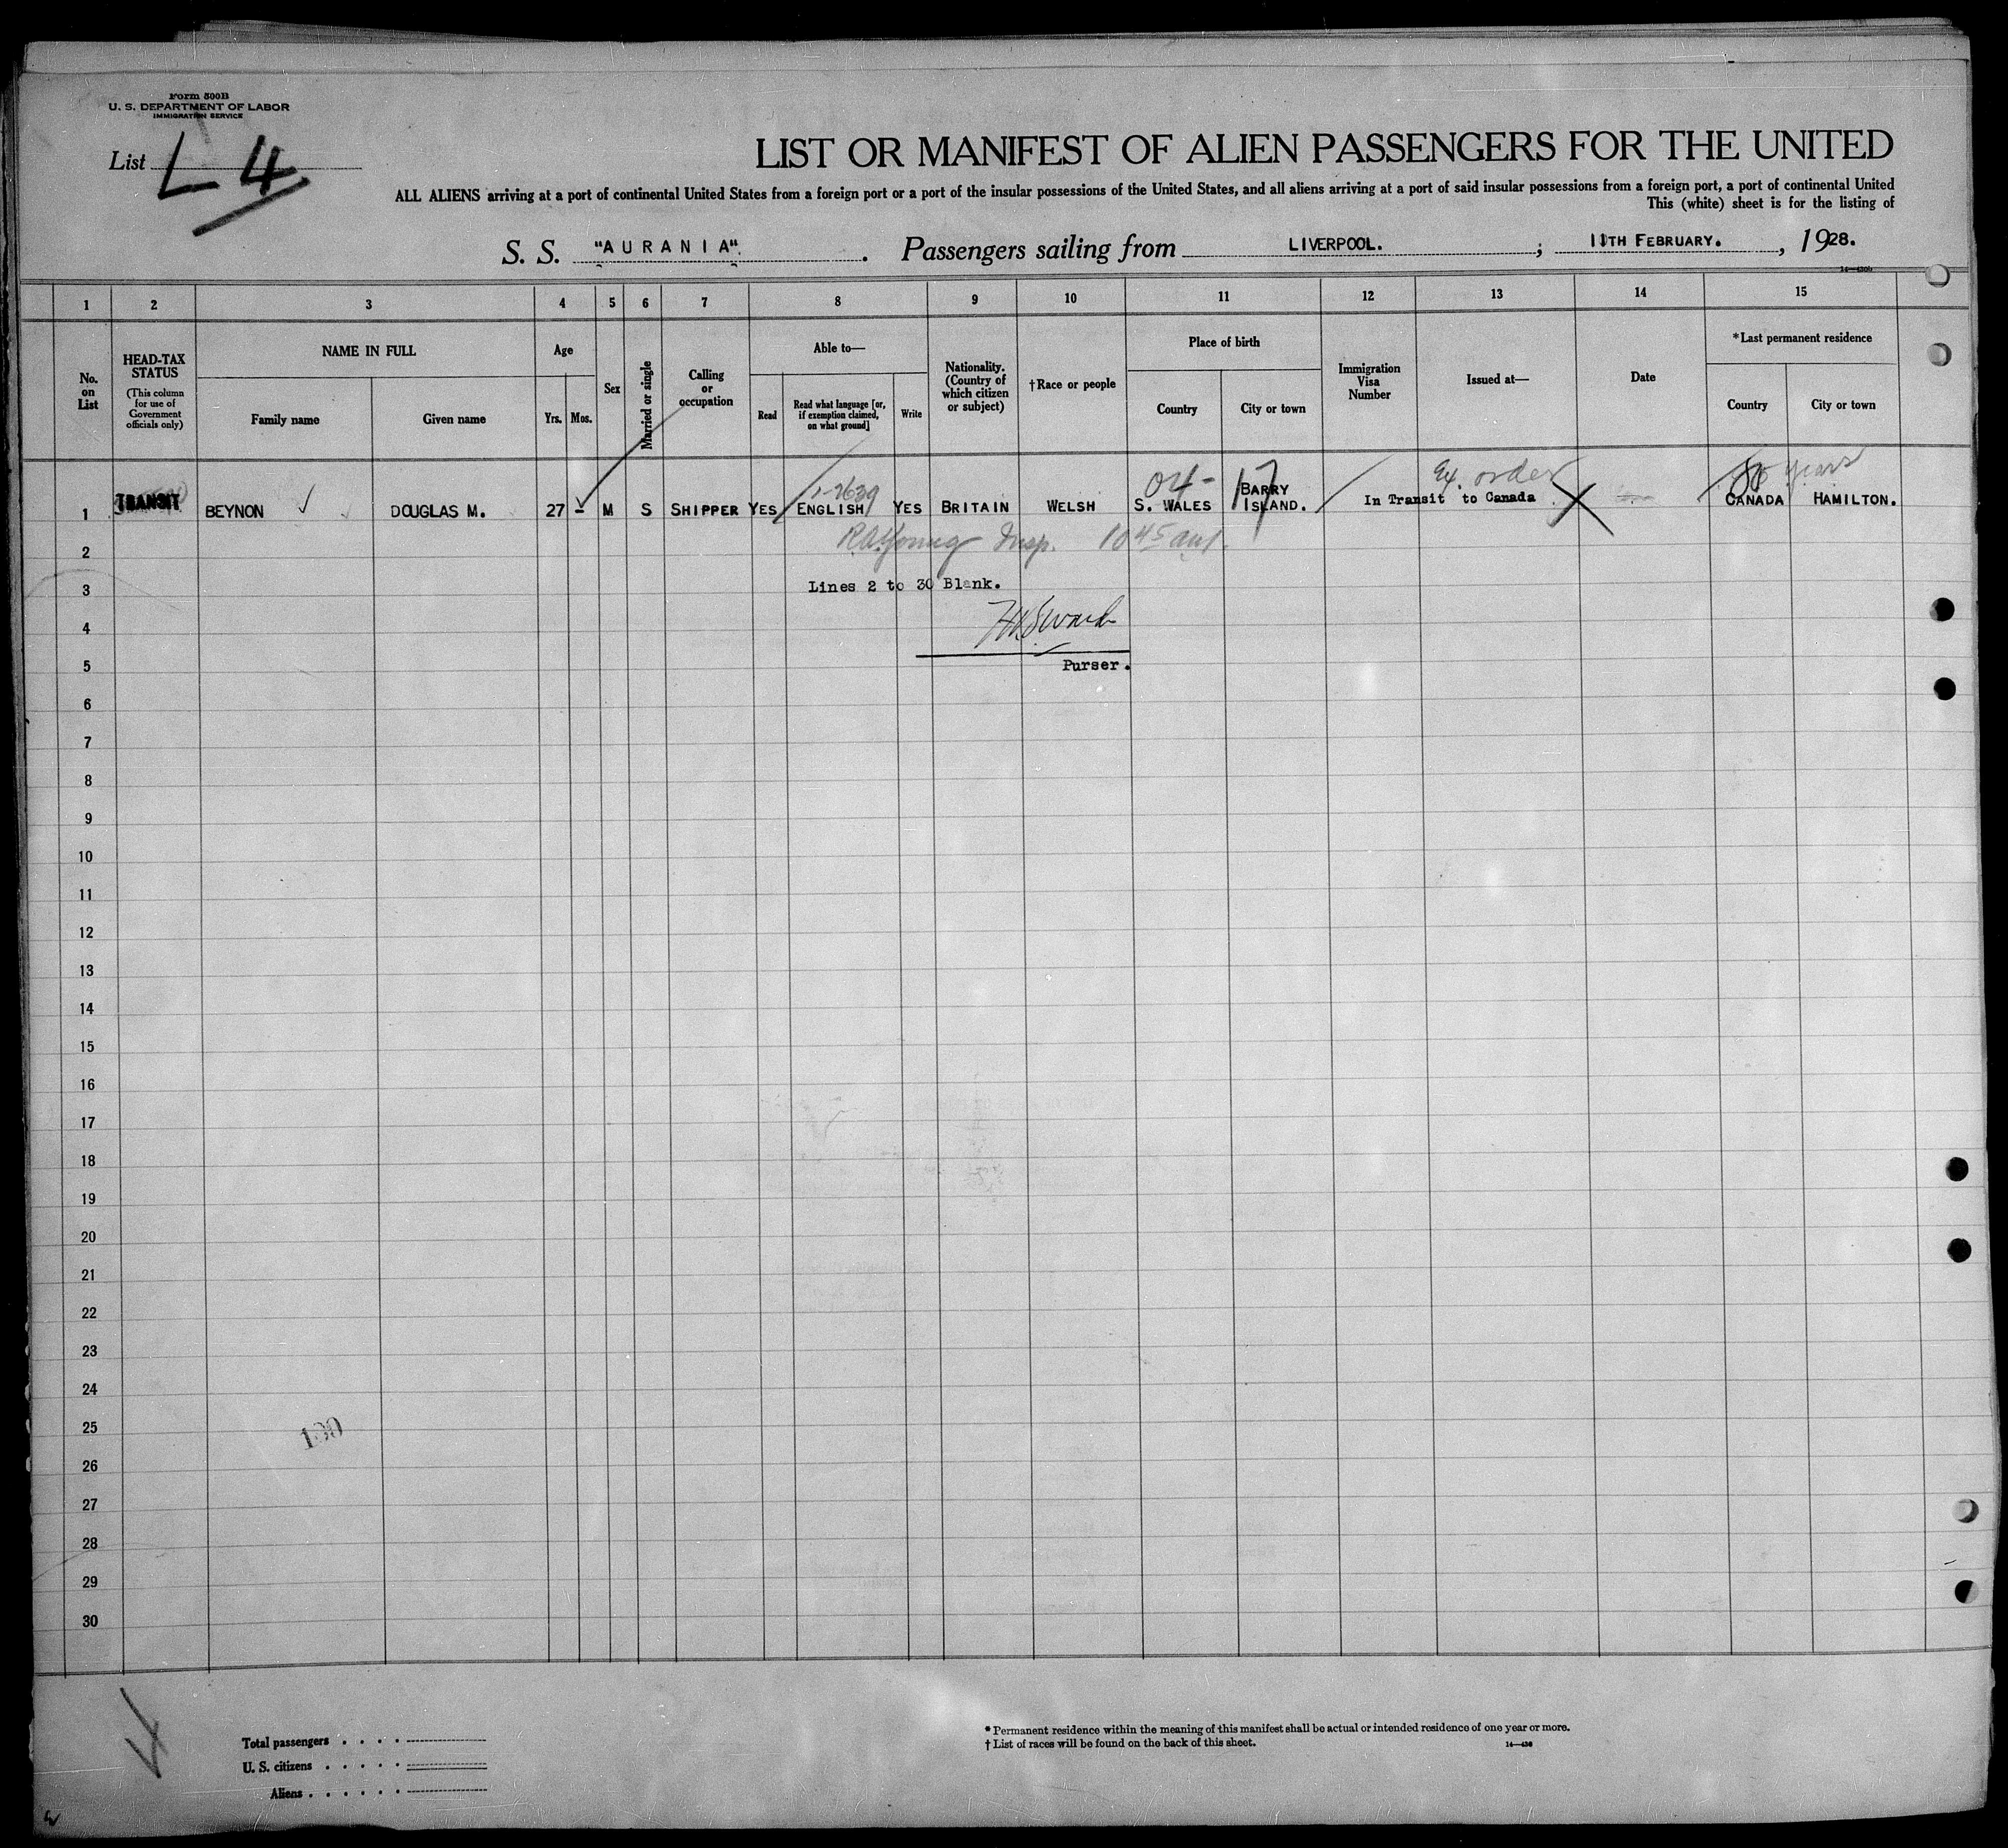 Form 500B
U. S. DEPARTMENT OF LABOR
IMMIGRATION SERVICE
List L 4.
LIST OR MANIFEST OF ALIEN PASSENGERS FOR THE UNITED
ALL ALIENS arriving at a port of continental United States from a foreign port or a port of the insular possessions of the United States, and all aliens arriving at a port of said insular possessions from a foreign port, a port of continental United
This (white) sheet is for the listing of
S. S. "AURANIA". Passengers sailing from LIVERPOOL. ; 11TH FEBRUARY. , 1928.
1 2 3 4 5 6 7 8 9 10 11 12 13 14 15
No. on List
HEAD-TAX STATUS
(This column for use of Government officials only)
NAME IN FULL
Family name
Given name
Age
Yrs.
Mos.
Sex
Married or single
Calling or occupation
Able to—
Read
Read what language [or, if exemption claimed, on what ground]
Write
Nationality. (Country of which citizen or subject)
†Race or people
Place of birth
Country
City or town
Immigration Visa Number
Issued at—
Date
*Last permanent residence
Country
City or town
04- 17 Ex. order years
1 TRANSIT BEYNON DOUGLAS M. 27 - M S SHIPPER YES ENGLISH YES BRITAIN WELSH S. WALES BARRY ISLAND. In Transit to Canada CANADA HAMILTON.
2 Insp. 10 45 am.
3 Lines 2 to 30 Blank.
4
5 Purser.
6
7
8
9
10
11
12
13
14
15
16
17
18
19
20
21
22
23
24
25
26
27
28
29
30
Total passengers
U. S. citizens
Aliens
* Permanent residence within the meaning of this manifest shall be actual or intended residence of one year or more.
† List of races will be found on the back of this sheet.